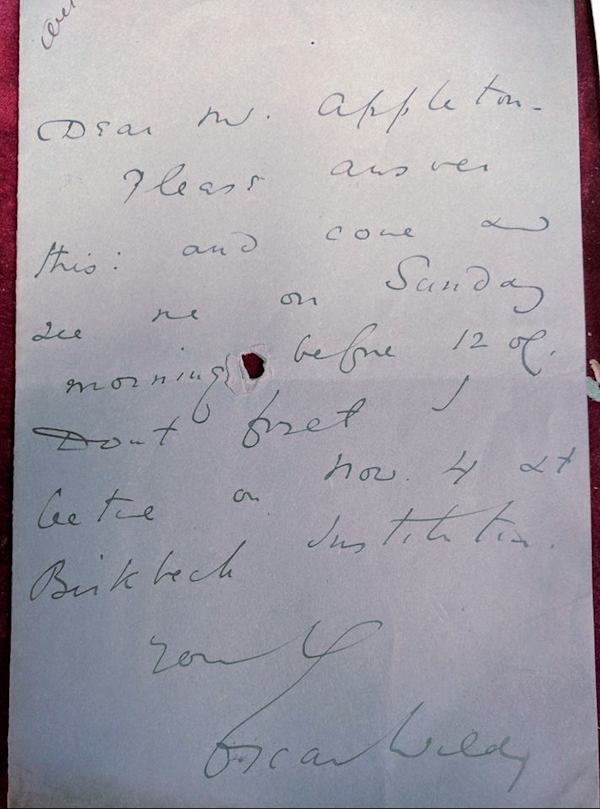 Dear Mr. Appleton -
Please answer
this: and come and
see me on Sunday
morning before 12 o'c.
Don't forget I
lecture on Nov. 4 at
Birkbeck Institution.
Yours
Oscar Wilde